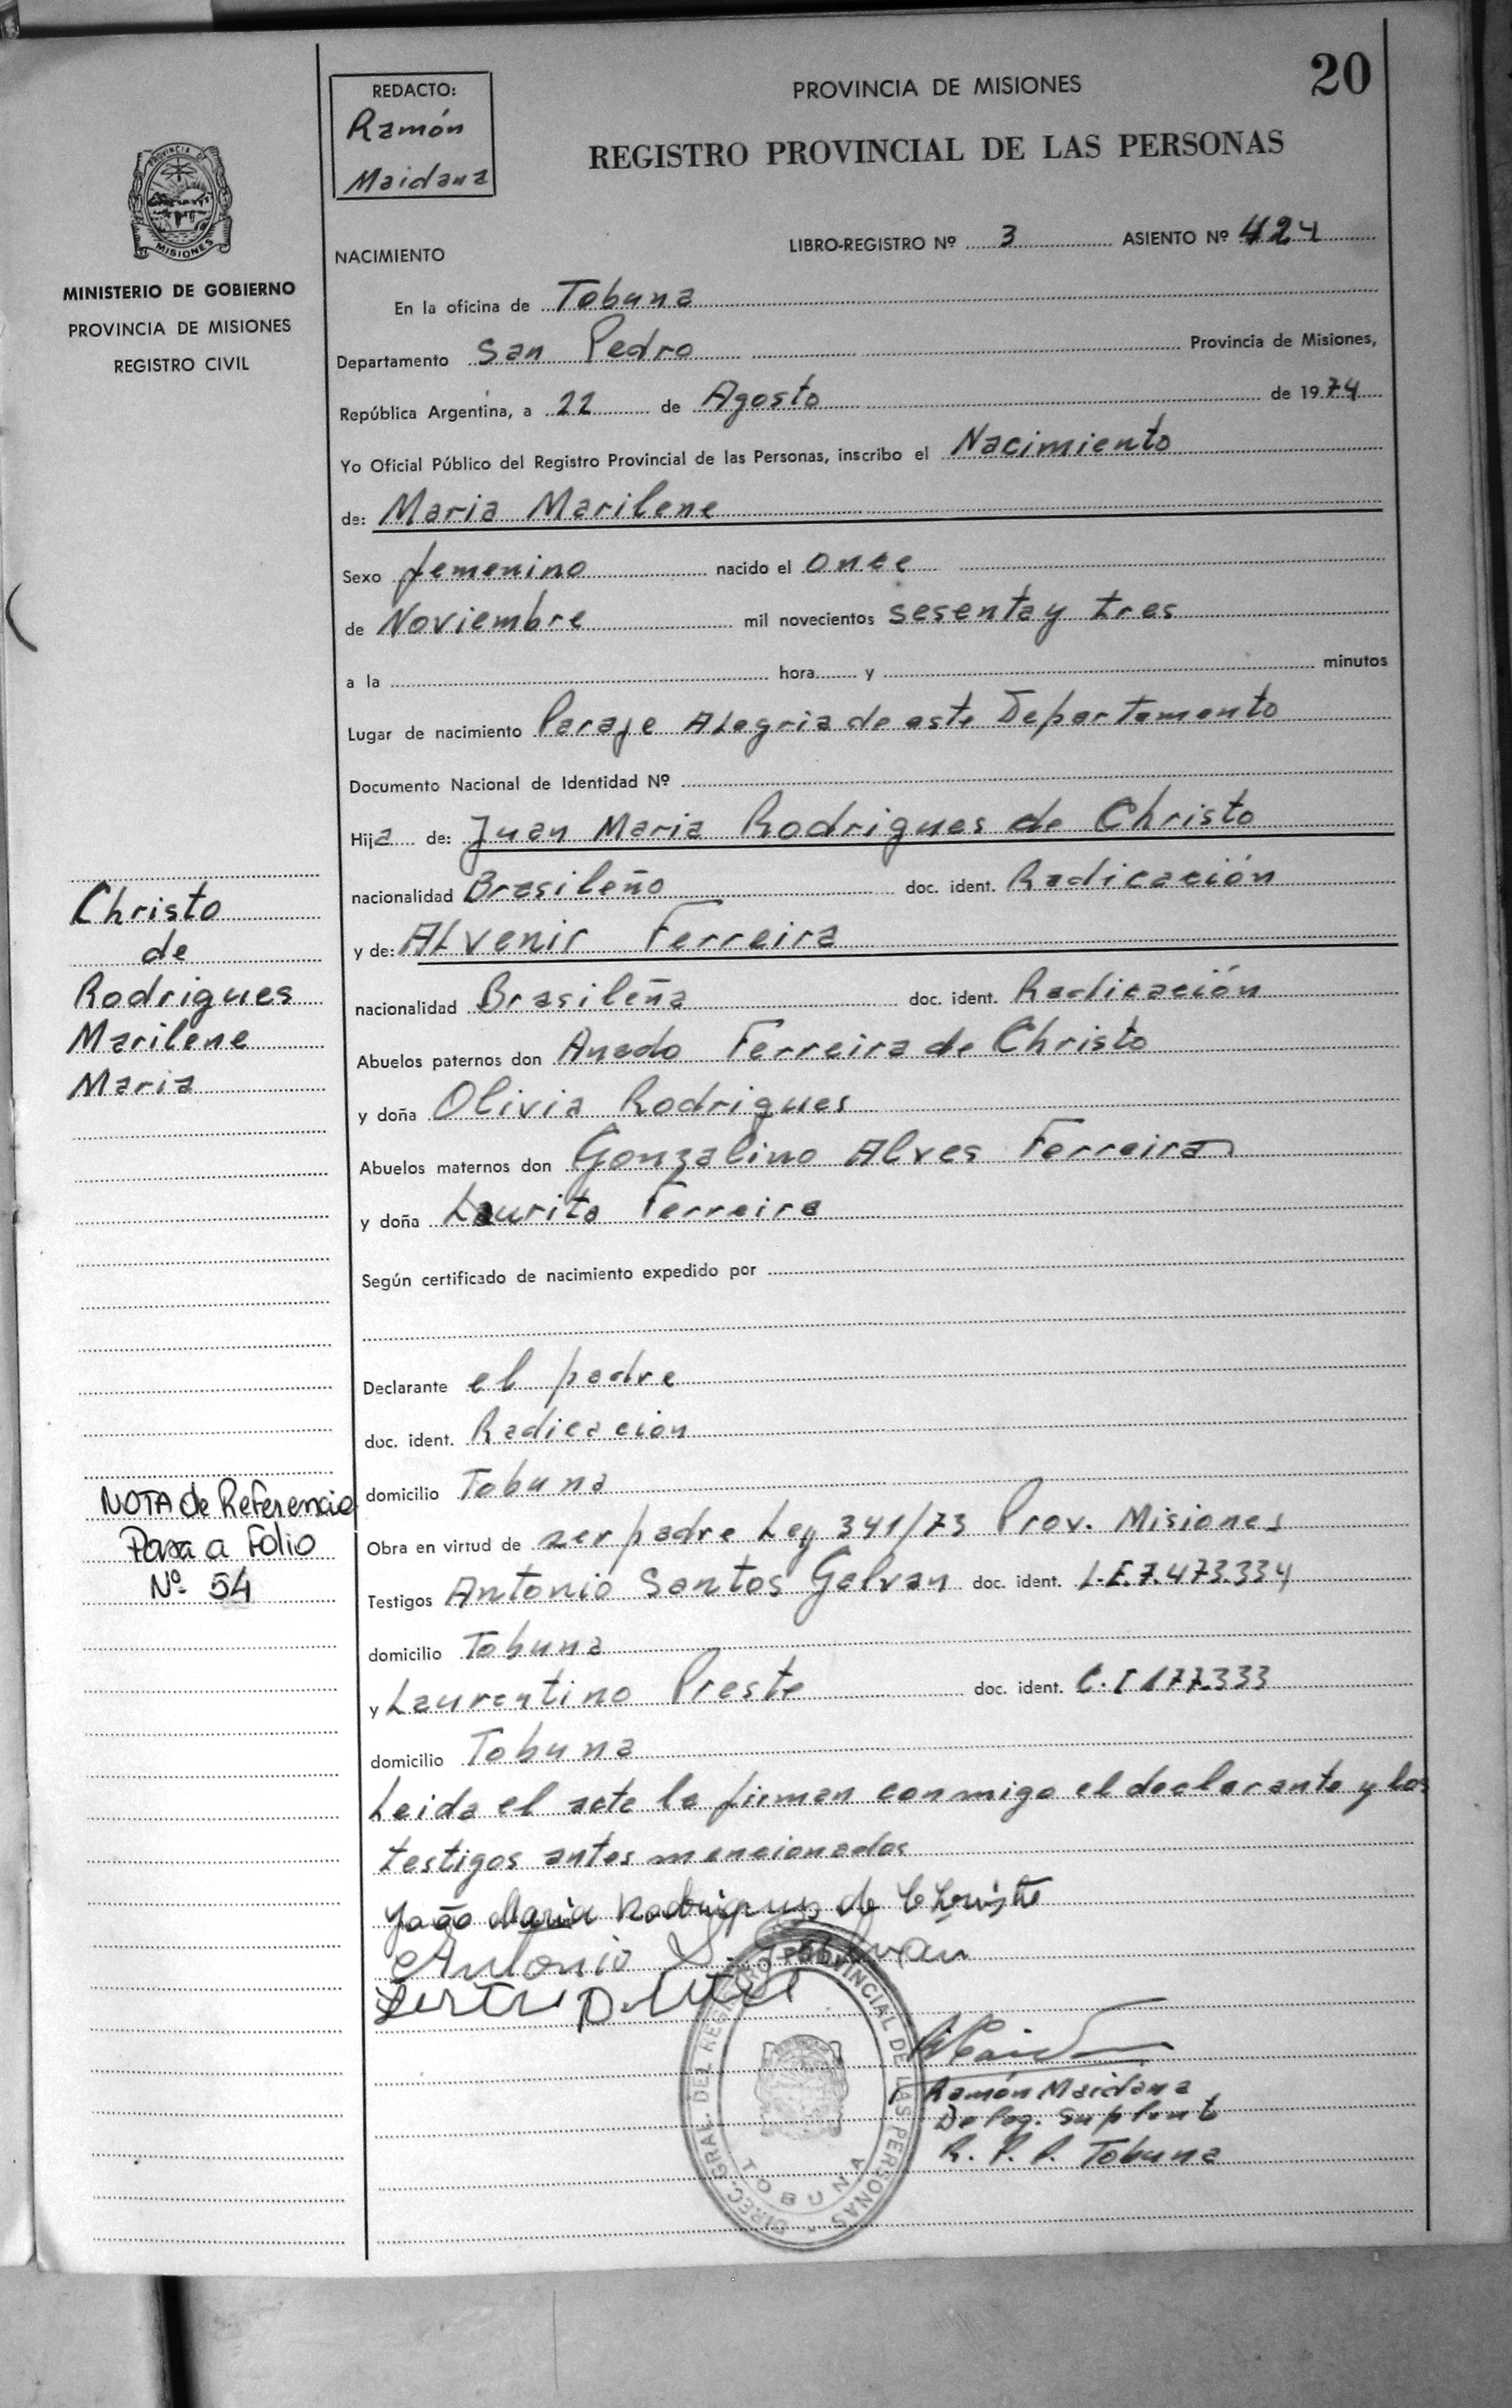 20
REDACTO:
Ramón
Maidana
PROVINCIA DE MISIONES
REGISTRO PROVINCIAL DE LAS PERSONAS
PROVINCIA DE
MISIONES
MINISTERIO DE GOBIERNO
PROVINCIA DE MISIONES
REGISTRO CIVIL
NACIMIENTO
LIBRO-REGISTRO Nº 3 ASIENTO Nº 424
En la oficina de Tobuna
Departamento San Pedro Provincia de Misiones,
República Argentina, a 22 de Agosto de 1974
Yo Oficial Público del Registro Provincial de las Personas, inscribo el Nacimiento
de: Maria Marilene
Sexo femenino nacido el once
de Noviembre mil novecientos sesenta y tres
a la hora y minutos
Lugar de nacimiento Paraje Alegria de este Departamento
Documento Nacional de Identidad Nº
Hija de: Juan Maria Rodrigues de Christo
nacionalidad Brasileño doc. ident. Radicación
y de: Alvenir Ferreira
nacionalidad Brasileña doc. ident. Radicación
Abuelos paternos don Anado Ferreira de Christo
y doña Olivia Rodrigues
Abuelos maternos don Gonzalino Alves Ferreira
y doña Laurita Ferreira
Según certificado de nacimiento expedido por
Declarante el padre
doc. ident. Radicacion
domicilio Tobuna
Obra en virtud de ser padre Ley 341/73 Prov. Misiones
Testigos Antonio Santos Galvan doc. ident. L.E.7.473.334
domicilio Tobuna
y Laurentino Preste doc. ident. C.I 177.333
domicilio Tobuna
Leida el acta la firman conmigo el declarante y los
testigos antes mencionados
João Maria Rodrigues de Christo
Antonio S. Galvan
Ramón Maidana
Deleg. Suplente
R. P. P. Tobuna
DIREC. GRAL. DEL REGISTRO PROVINCIAL DE LAS PERSONAS
TOBUNA
Christo
de
Rodrigues
Marilene
Maria
NOTA de Referencia
Pasa a Folio
Nº 54